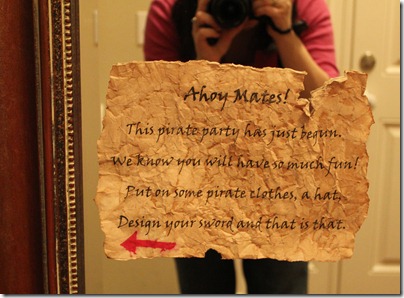 Ahoy Mates!
This pirate party has just begun.
We know you will have so much fun!
Put on some pirate clothes, a hat,
Design your sword and that is that.